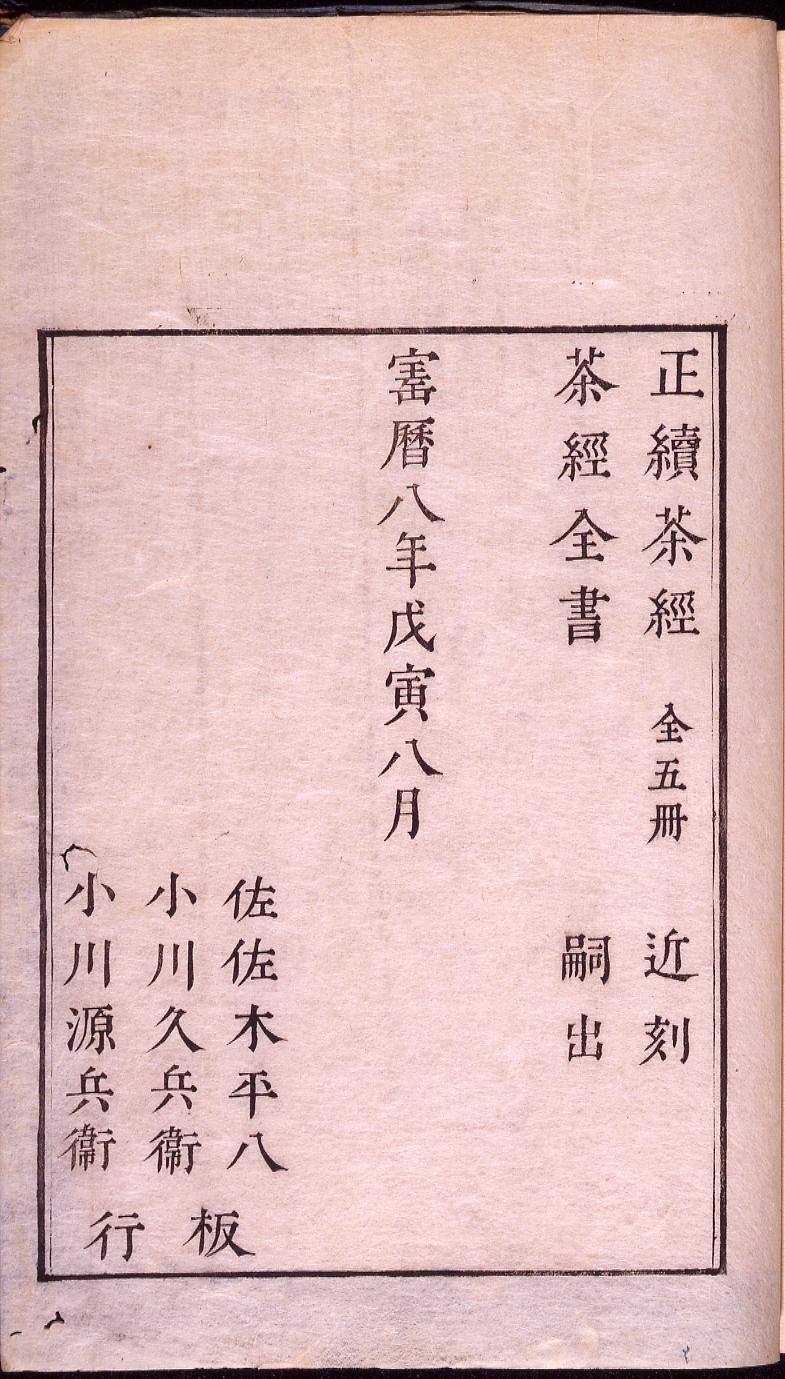 正續茶經 全五冊 近刻
茶經全書 嗣出
寚暦八年戊寅八月
佐佐木平八
小川久兵衞
小川源兵衞
板行